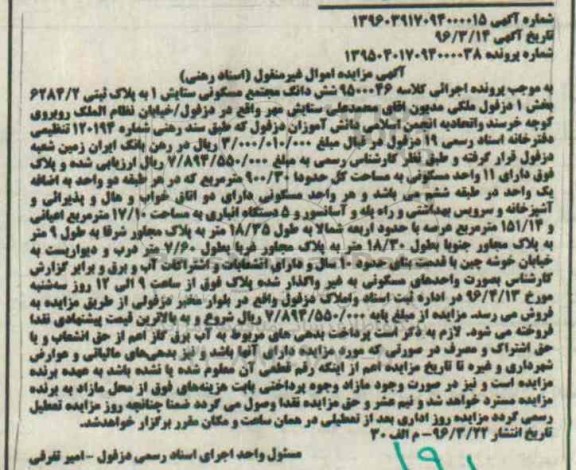 شماره آگهی ۱۳۹۶۰۳۹۱۷۰۹۴۰۰۰۰۱۵
تاریخ آگهی ۹۶/۳/۱۴
شماره پرونده ۱۳۹۵۰۴۰۱۷۰۹۴۰۰۰۰۳۸
آگهی مزایده اموال غیرمنقول (اسناد رهنی)
به موجب پرونده اجرائی کلاسه ۹۵۰۰۰۴۶ شش دانگ مجتمع مسکونی ستایش ۱ به پلاک ثبتی ۶۲۸۴/۲
بخش ۱ دزفول ملکی مدیون آقای محمدعلی ستایش مهر واقع در دزفول/خیابان نظام الملک روبروی
کوچه خرسند واتحادیه انجمن اسلامی دانش آموزان دزفول که طبق سند رهنی شماره ۱۲۰۱۹۴ تنظیمی
دفترخانه اسناد رسمی ۱۹ دزفول در قبال مبلغ ۳/۰۰۰/۰۱۰/۰۰۰ ریال در رهن بانک ایران زمین شعبه
دزفول قرار گرفته و طبق نظر کارشناس رسمی به مبلغ ۷/۸۹۴/۵۵۰/۰۰۰ ریال ارزیابی شده و پلاک
فوق دارای ۱۱ واحد مسکونی به مساحت کل حدودا ۹۰۰/۳۰ مترمربع که در هر طبقه دو واحد به اضافه
یک واحد در طبقه ششم می باشد و هر واحد مسکونی دارای دو اتاق خواب و هال و پذیرائی و
آشپزخانه و سرویس بهداشتی و راه پله و آسانسور و ۵ دستگاه انباری به مساحت ۱۷/۱۰ مترمربع اعیانی
و ۱۵۱/۱۴ مترمربع عرصه با حدود اربعه شمالا به طول ۱۸/۳۵ متر به پلاک مجاور شرقا به طول ۹ متر
به پلاک مجاور جنوبا بطول ۱۸/۳۰ متر به پلاک مجاور غربا بطول ۷/۶۰ متر درب و دیواریست به
خیابان خوشه چین با قدمت بنای حدود ۱۰ سال و دارای انشعابات و اشتراکات آب و برق و برابر گزارش
کارشناس بصورت واحدهای مسکونی به غیر واگذار شده پلاک فوق از ساعت ۹ الی ۱۲ روز سه‌شنبه
مورخ ۹۶/۴/۱۳ در اداره ثبت اسناد واملاک دزفول واقع در بلوار متخبر دزفولی از طریق مزایده به
فروش می رسد. مزایده از مبلغ پایه ۷/۸۹۴/۵۵۰/۰۰۰ ریال شروع و به بالاترین قیمت پیشنهادی نقدا
فروخته می شود. لازم به ذکر است پرداخت بدهی های مربوط به آب برق گاز اعم از حق انشعاب و یا
حق اشتراک و مصرف در صورتی که مورد مزایده دارای آنها باشد و نیز بدهی‌های مالیاتی و عوارض
شهرداری و غیره تا تاریخ مزایده اعم از اینکه رقم قطعی آن معلوم شده یا نشده باشد به عهده برنده
مزایده است و نیز در صورت وجود مازاد وجوه پرداختی بابت هزینه‌های فوق از محل مازاد به برنده
مزایده مسترد خواهد شد و نیم عشر و حق مزایده نقدا وصول می گردد ضمنا چنانچه روز مزایده تعطیل
رسمی گردد مزایده روز اداری بعد از تعطیلی در همان ساعت و مکان مقرر برگزار خواهدشد.
تاریخ انتشار ۹۶/۳/۲۲- م الف ۳۰
مسئول واحد اجرای اسناد رسمی دزفول - امیر تفرقی